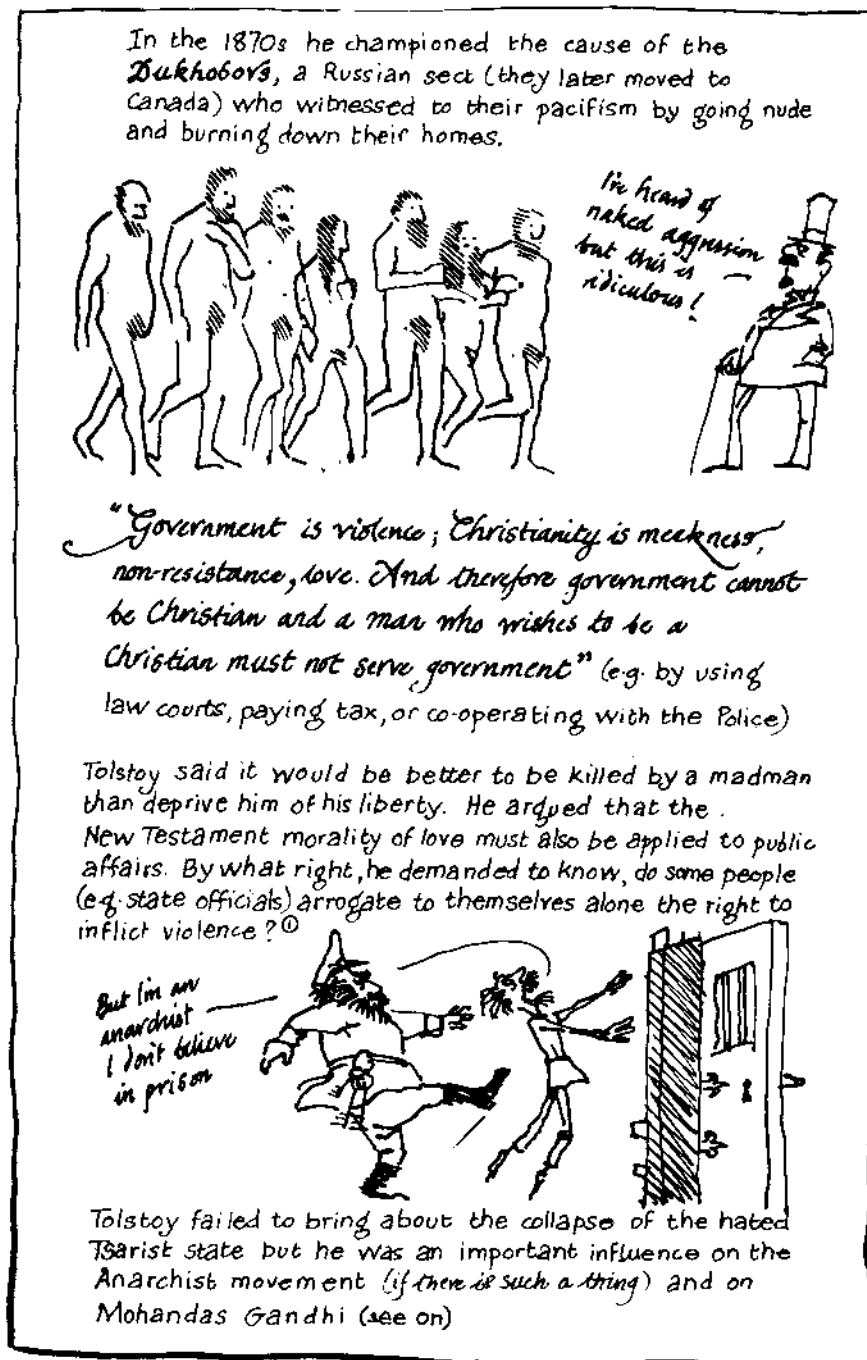 In the 1870s he championed the cause of the
Dukhobors, a Russian sect (they later moved to
Canada) who witnessed to their pacifism by going nude
and burning down their homes.
I've heard of
naked aggression
but this is
ridiculous!
"Government is violence; Christianity is meekness,
non-resistance, love. And therefore government cannot
be Christian and a man who wishes to be a
Christian must not serve government" (e.g. by using
law courts, paying tax, or co-operating with the Police)
Tolstoy said it would be better to be killed by a madman
than deprive him of his liberty. He argued that the
New Testament morality of love must also be applied to public
affairs. By what right, he demanded to know, do some people
(e.g. state officials) arrogate to themselves alone the right to
inflict violence?①
But I'm an
anarchist
I don't believe
in prison
Tolstoy failed to bring about the collapse of the hated
Tsarist state but he was an important influence on the
Anarchist movement (if there is such a thing) and on
Mohandas Gandhi (see on)